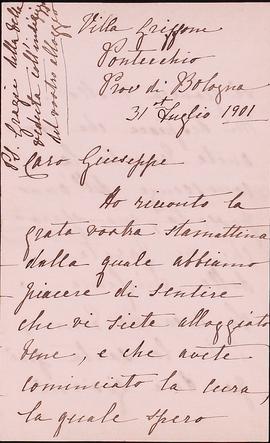 Villa Griffone
Pontecchio
Prov di Bologna
31st Luglio 1901
PS. Grazie della
veduta coll'indirizzo
del vostro alloggio
Caro Giuseppe
Ho ricevuto la
grata vostra stamattina
dalla quale abbiamo
piacere di sentire
che vi siete alloggiato
bene, e che avete
cominciato la cura,
la quale spero